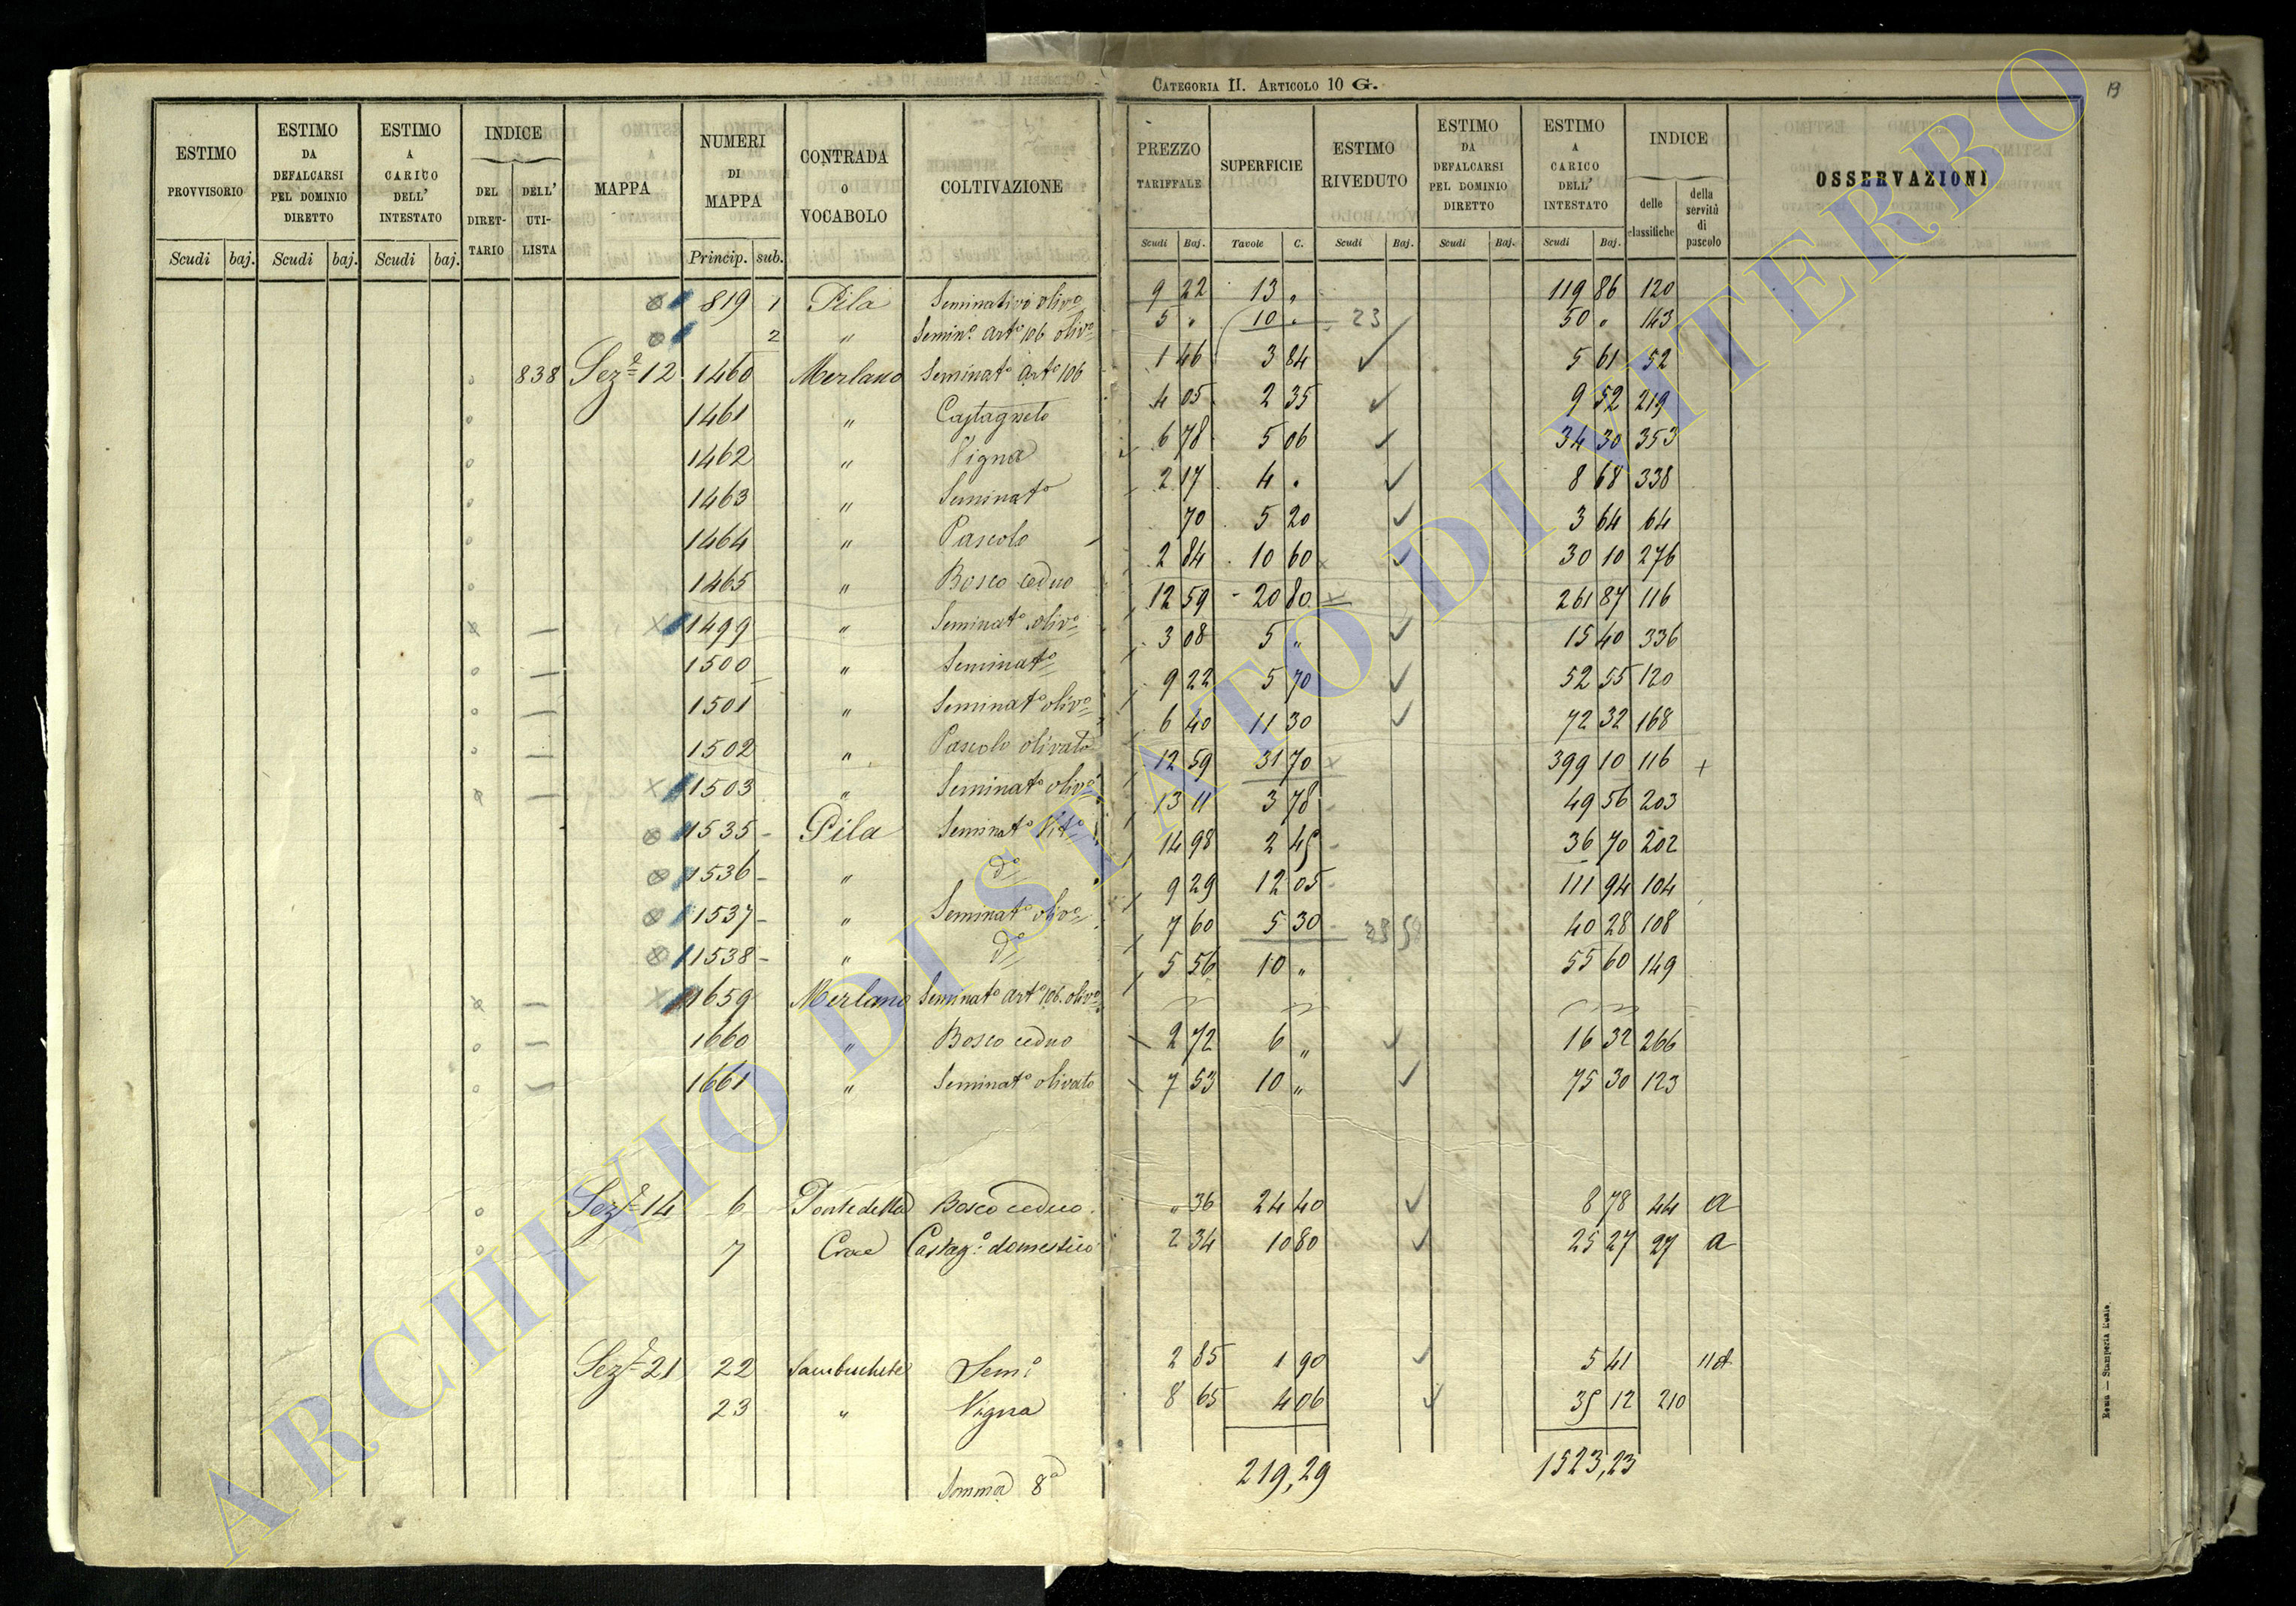 CATEGORIA II. ARTICOLO 10 G.
ESTIMO PROVVISORIO Scudi baj. | ESTIMO DA DEFALCARSI PEL DOMINIO DIRETTO Scudi baj. | ESTIMO A CARICO DELL' INTESTATO Scudi baj. | INDICE DEL DIRETTARIO DELL' UTILISTA | MAPPA | NUMERI DI MAPPA Princip. sub. | CONTRADA O VOCABOLO | COLTIVAZIONE | PREZZO TARIFFALE Scudi Baj. | SUPERFICIE Tavole C. | ESTIMO RIVEDUTO Scudi Baj. | ESTIMO DA DEFALCARSI PEL DOMINIO DIRETTO Scudi Baj. | ESTIMO A CARICO DELL' INTESTATO Scudi Baj. | INDICE delle classifiche della servitù di pascolo | OSSERVAZIONI
819 1 Pila Seminativo olivo 9 22 13 „ 119 86 120
2 „ Semino arto 106 olivo 5 „ 10 „ 23 50 „ 143
838 Seze 12 1460 Merlano Seminato arto 106 1 46 3 84 5 61 52
1461 „ Castagneto 4 05 2 35 9 52 219
1462 „ Vigna 6 78 5 06 34 30 353
1463 „ Seminato 2 17 4 „ 8 68 338
1464 „ Pascolo 70 5 20 3 64 64
1465 „ Bosco ceduo 2 84 10 60 30 10 276
1499 „ Seminato olivo 12 59 20 80 261 87 116
1500 „ Seminato 3 08 5 „ 15 40 336
1501 „ Seminato olivo 9 22 5 70 52 55 120
1502 „ Pascolo olivato 6 40 11 30 72 32 168
1503 „ Seminato olivo 12 59 31 70 399 10 116 +
1535 Pila Seminato Vito 13 11 3 78 49 56 203
1536 „ do 14 98 2 45 36 70 202
1537 „ Seminato olivo 9 29 12 05 111 94 104
1538 „ do 7 60 5 30 40 28 108
1659 Merlano Seminato arto 106 olivo 5 56 10 „ 55 60 149
1660 „ Bosco ceduo 2 72 6 „ 16 32 266
1661 „ Seminato olivato 7 53 10 „ 75 30 123
Seze 14 6 Ponte della Bosco ceduo „ 36 24 40 8 78 44 a
7 Croce Castago domestico 2 34 10 80 25 27 27 a
Seze 21 22 Sambuchete Semo 2 85 1 90 5 41
23 „ Vigna 8 65 4 06 35 12 210
Somma 8a 219,29 1523,23
Roma — Stamperia Reale.
ARCHIVIO DI STATO DI VITERBO